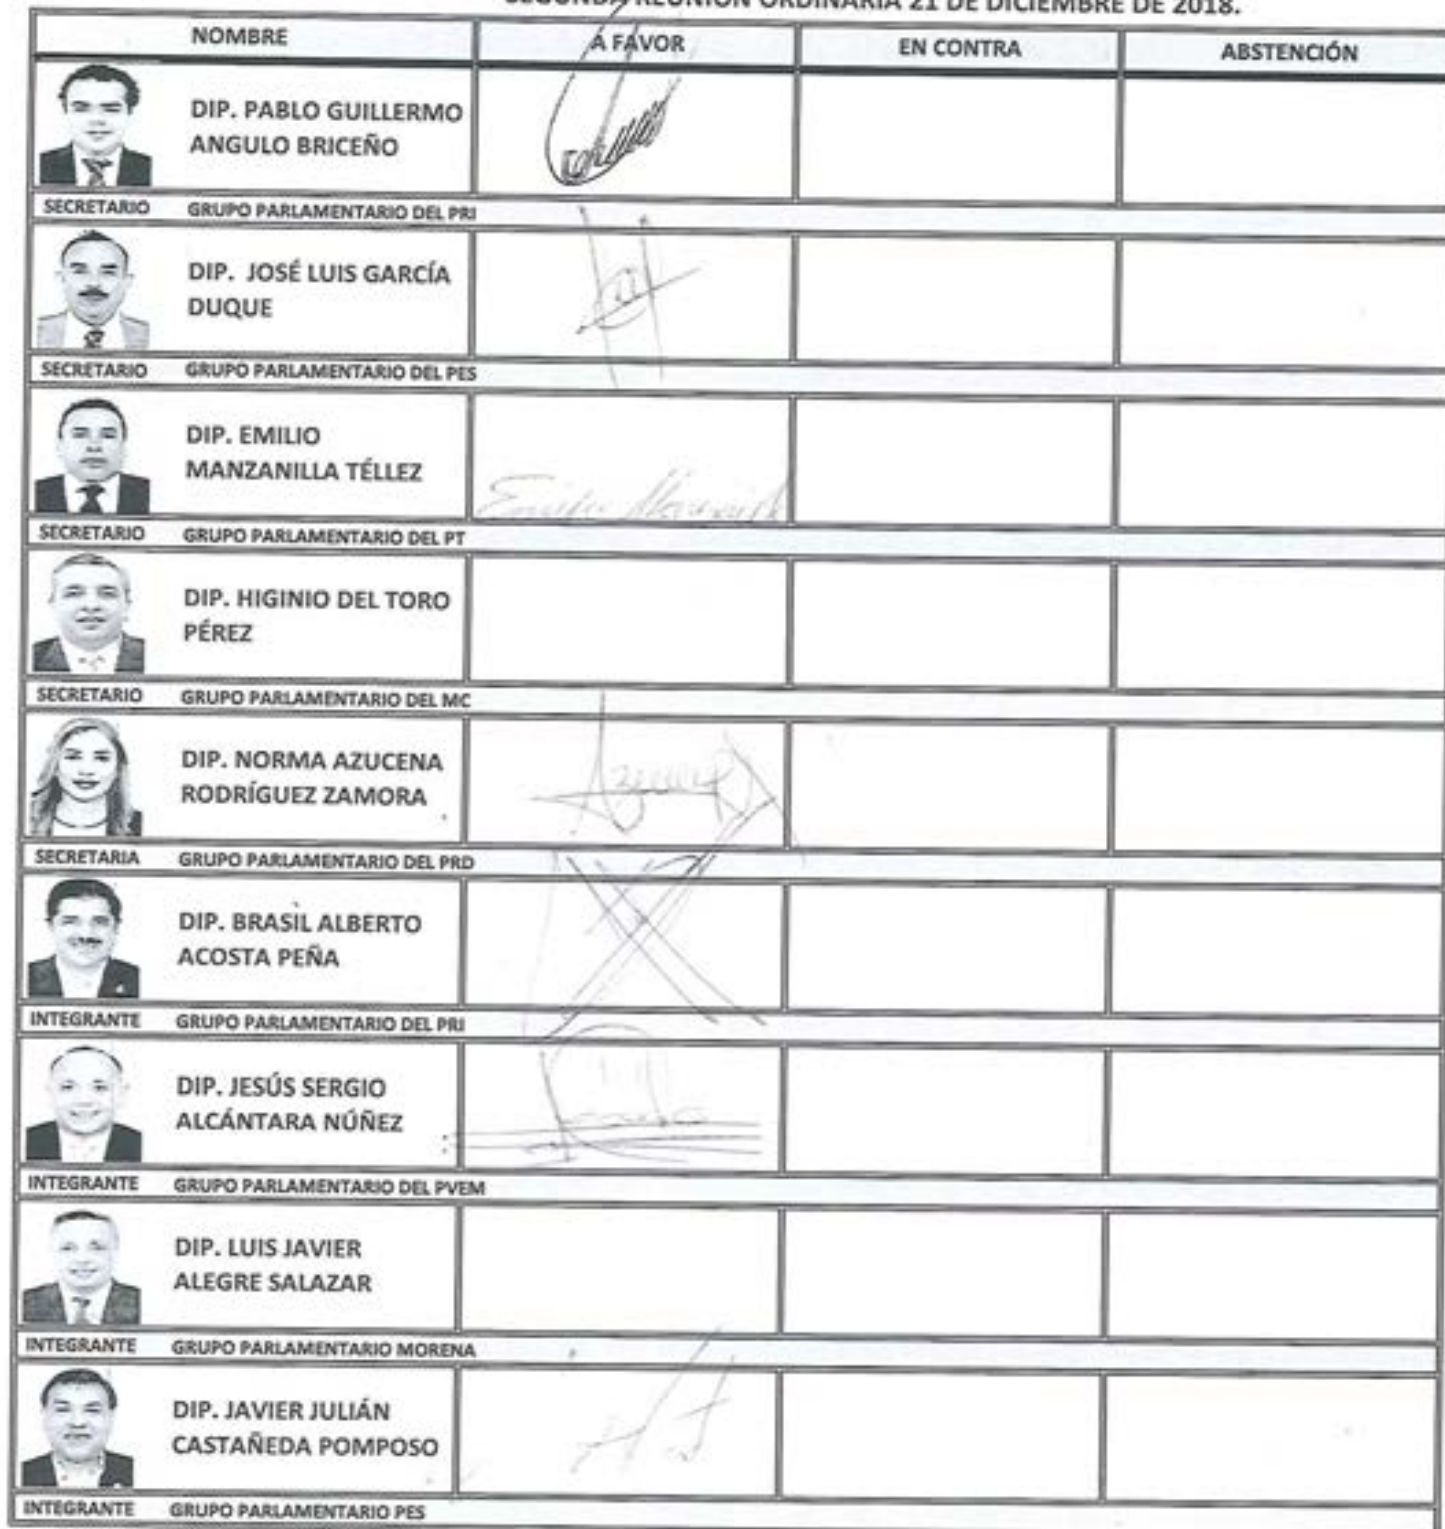 SEGUNDA REUNIÓN ORDINARIA 21 DE DICIEMBRE DE 2018.
NOMBRE A FAVOR EN CONTRA ABSTENCIÓN
DIP. PABLO GUILLERMO
ANGULO BRICEÑO
SECRETARIO GRUPO PARLAMENTARIO DEL PRI
DIP. JOSÉ LUIS GARCÍA
DUQUE
SECRETARIO GRUPO PARLAMENTARIO DEL PES
DIP. EMILIO
MANZANILLA TÉLLEZ
SECRETARIO GRUPO PARLAMENTARIO DEL PT
DIP. HIGINIO DEL TORO
PÉREZ
SECRETARIO GRUPO PARLAMENTARIO DEL MC
DIP. NORMA AZUCENA
RODRÍGUEZ ZAMORA
SECRETARIA GRUPO PARLAMENTARIO DEL PRD
DIP. BRASIL ALBERTO
ACOSTA PEÑA
INTEGRANTE GRUPO PARLAMENTARIO DEL PRI
DIP. JESÚS SERGIO
ALCÁNTARA NÚÑEZ
INTEGRANTE GRUPO PARLAMENTARIO DEL PVEM
DIP. LUIS JAVIER
ALEGRE SALAZAR
INTEGRANTE GRUPO PARLAMENTARIO MORENA
DIP. JAVIER JULIÁN
CASTAÑEDA POMPOSO
INTEGRANTE GRUPO PARLAMENTARIO PES